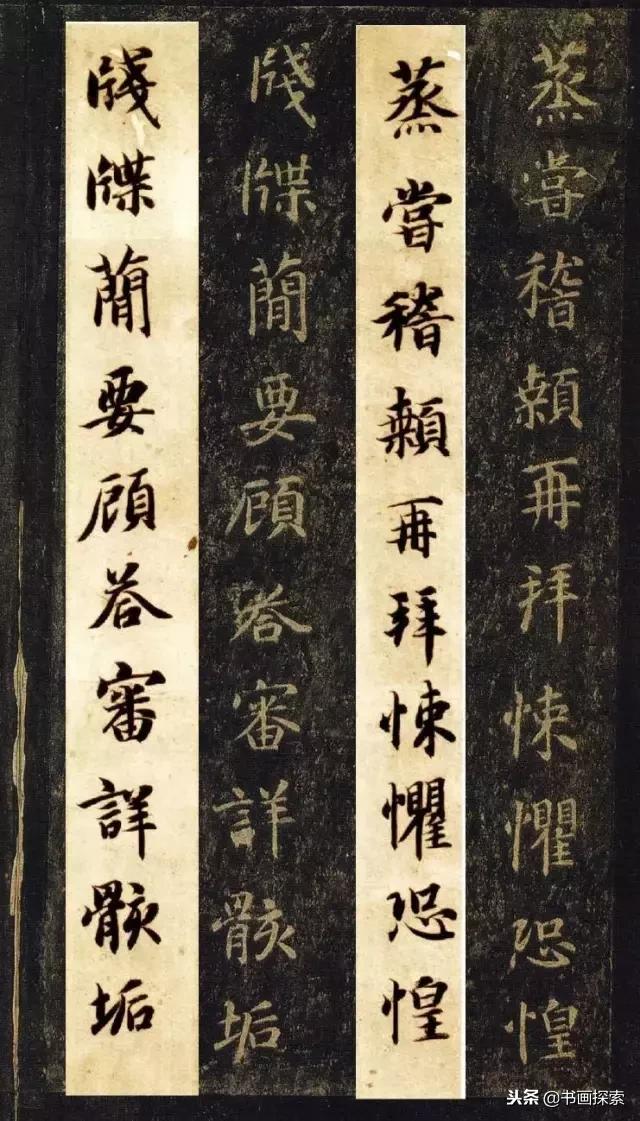 蒸嘗稽顙再拜悚懼恐惶
蒸嘗稽顙再拜悚懼恐惶
牋牒簡要顧答審詳骸垢
牋牒簡要顧答審詳骸垢
头条 @书画探索